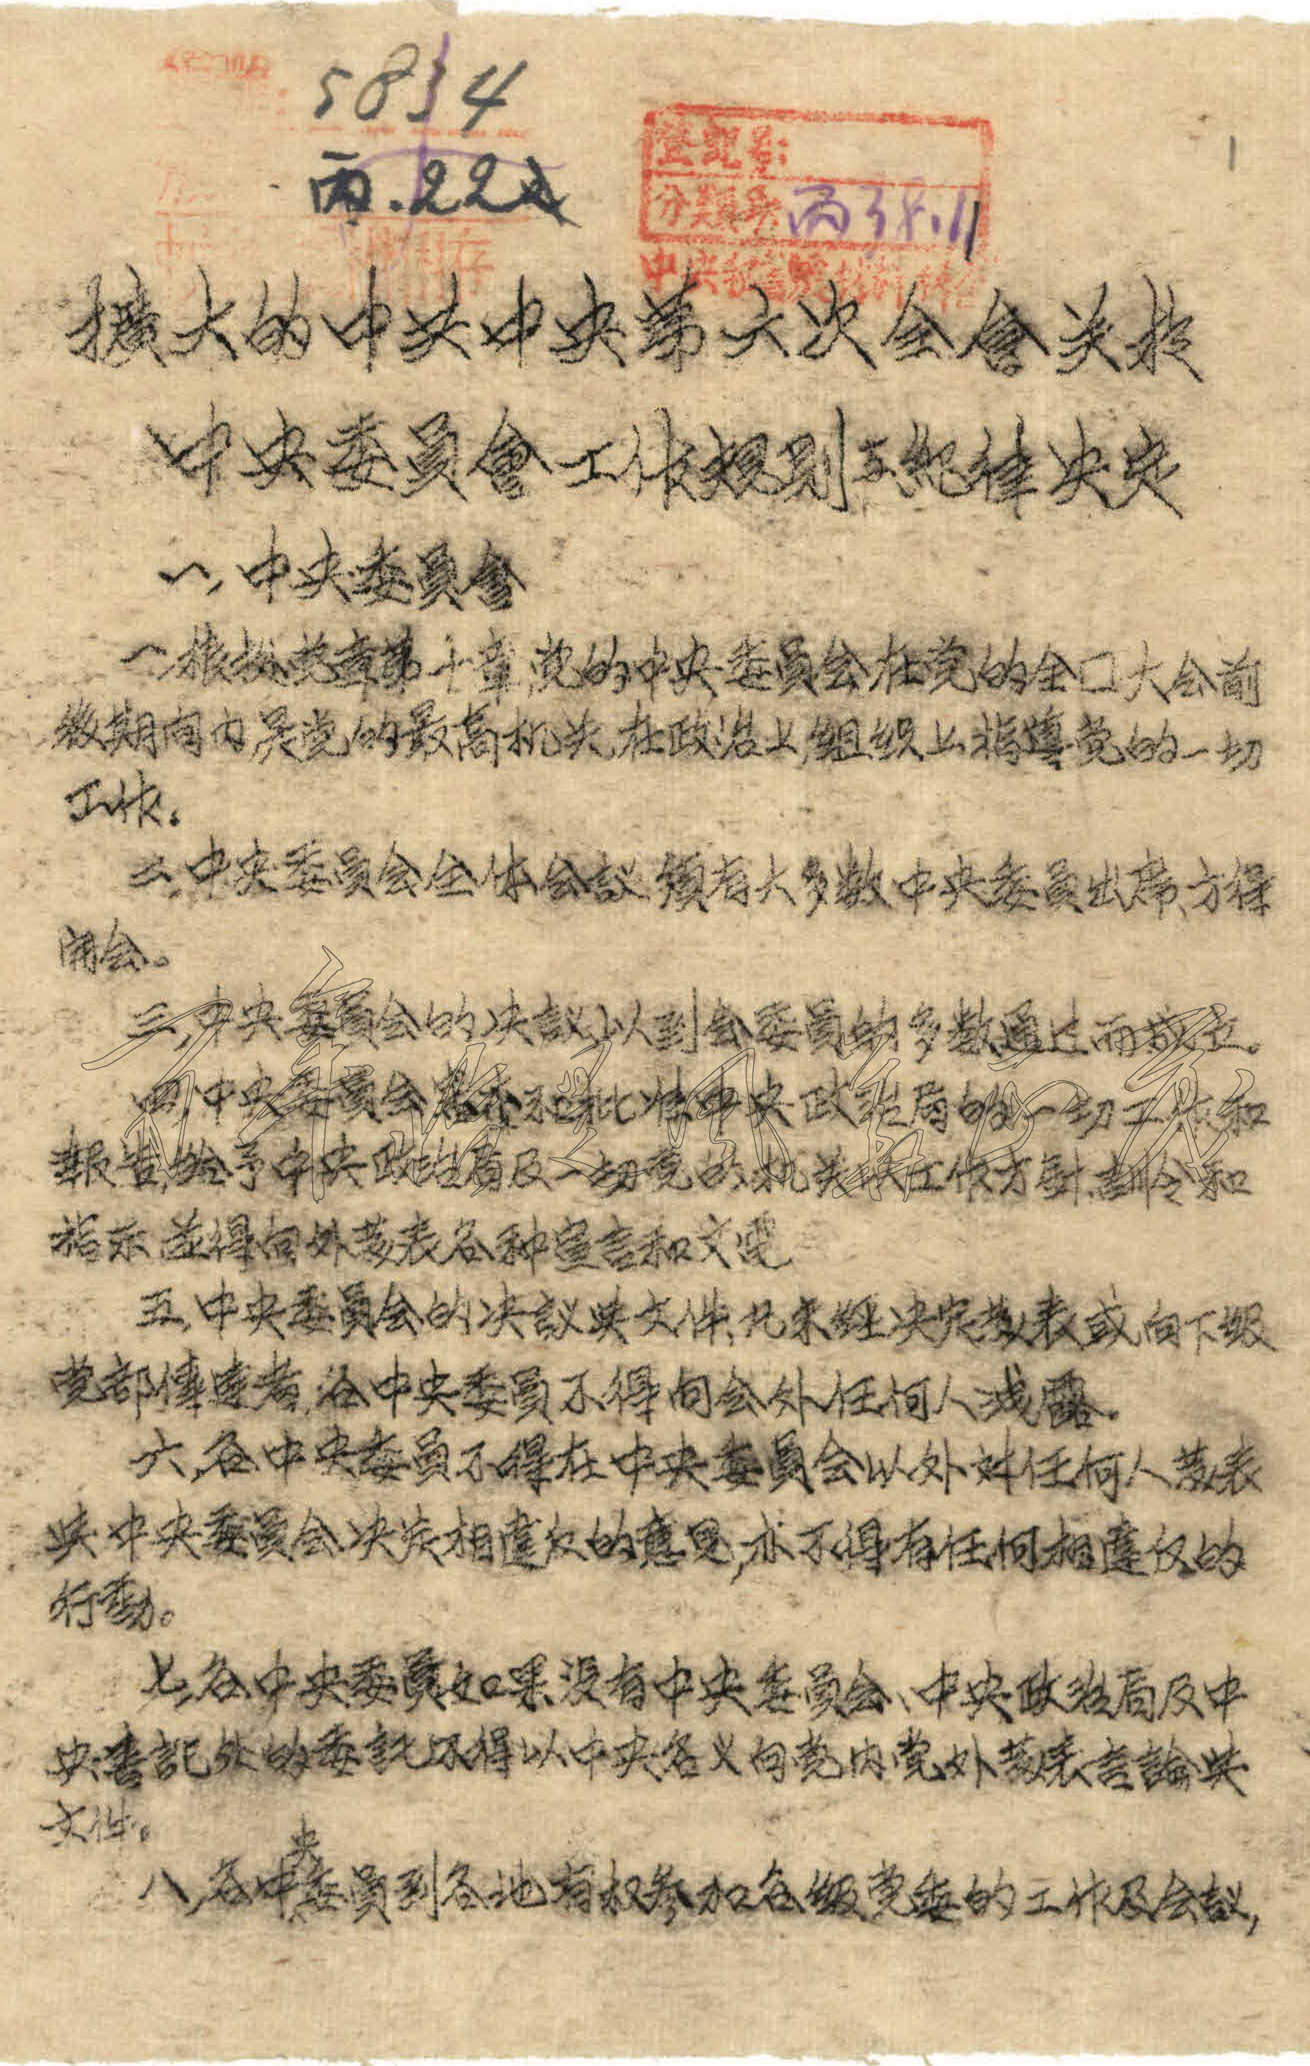 5834
丙.22
登記号:
分類号: 丙38.11
1
擴大的中共中央第六次全會关於
中央委員會工作規則与紀律决定
一、中央委員會
一、根據党章第十章,党的中央委員会在党的全囗大会前
後期间内是党的最高机关,在政治上,組織上指導党的一切
工作。
二、中央委員会全体会议須有大多数中央委員出席方得
開会。
三、中央委員会的决議,以到会委員的多数通过而成立。
四、中央委員会
批准中央政治局的一切工作和
報告,給予中央政治局及一切党的机关以工作方針、訓令和
指示,並得向外發表各种宣言和文電
五、中央委員会的决議與文件,凡未經决定發表或向下級
党部傳達者,各中央委員不得向会外任何人洩露。
六、各中央委員不得在中央委員会以外对任何人發表
與中央委員会决定相違反的意見,亦不得有任何相違反的
行動。
七、各中央委員如果没有中央委員会、中央政治局及中
央書記处的委託,不得以中央名义向党内党外發表言論與
文件。
八、各中央委員到各地有权参加各級党委的工作及会議,